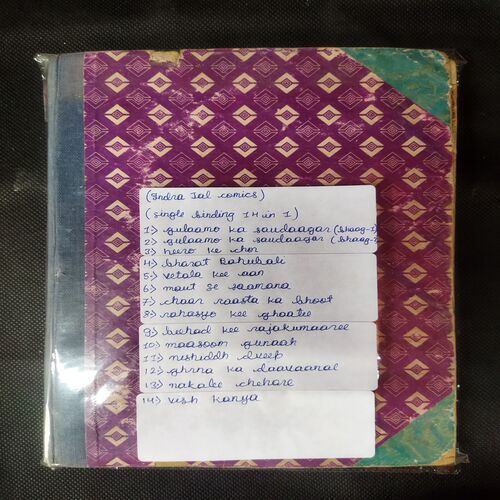 (Indra Jal comics)
(single binding 14 in 1)
1) gulaamo ka saudaagar (bhaag-1)
2) gulaamo ka saudaagar (bhaag-2
3) heero ke chor
4) bharat Bahubali
5) vetala kee aan
6) maut se saamana
7) chaar raasta ka bhoot
8) rahasyo kee ghaatee
9) beehad kee rajakumaaree
10) maasoom gunaah
11) nishiddh dveep
12) ghrna ka daavaanal
13) nakalee chehare
14) vish kanya